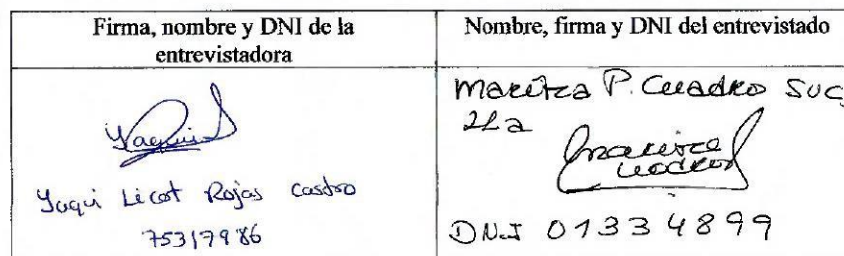 Firma, nombre y DNI de la
entrevistadora
Nombre, firma y DNI del entrevistado
Yaqui
Yaqui Licot Rojas Castro
75317986
Maritza P. Cuadro
DNI 01334899